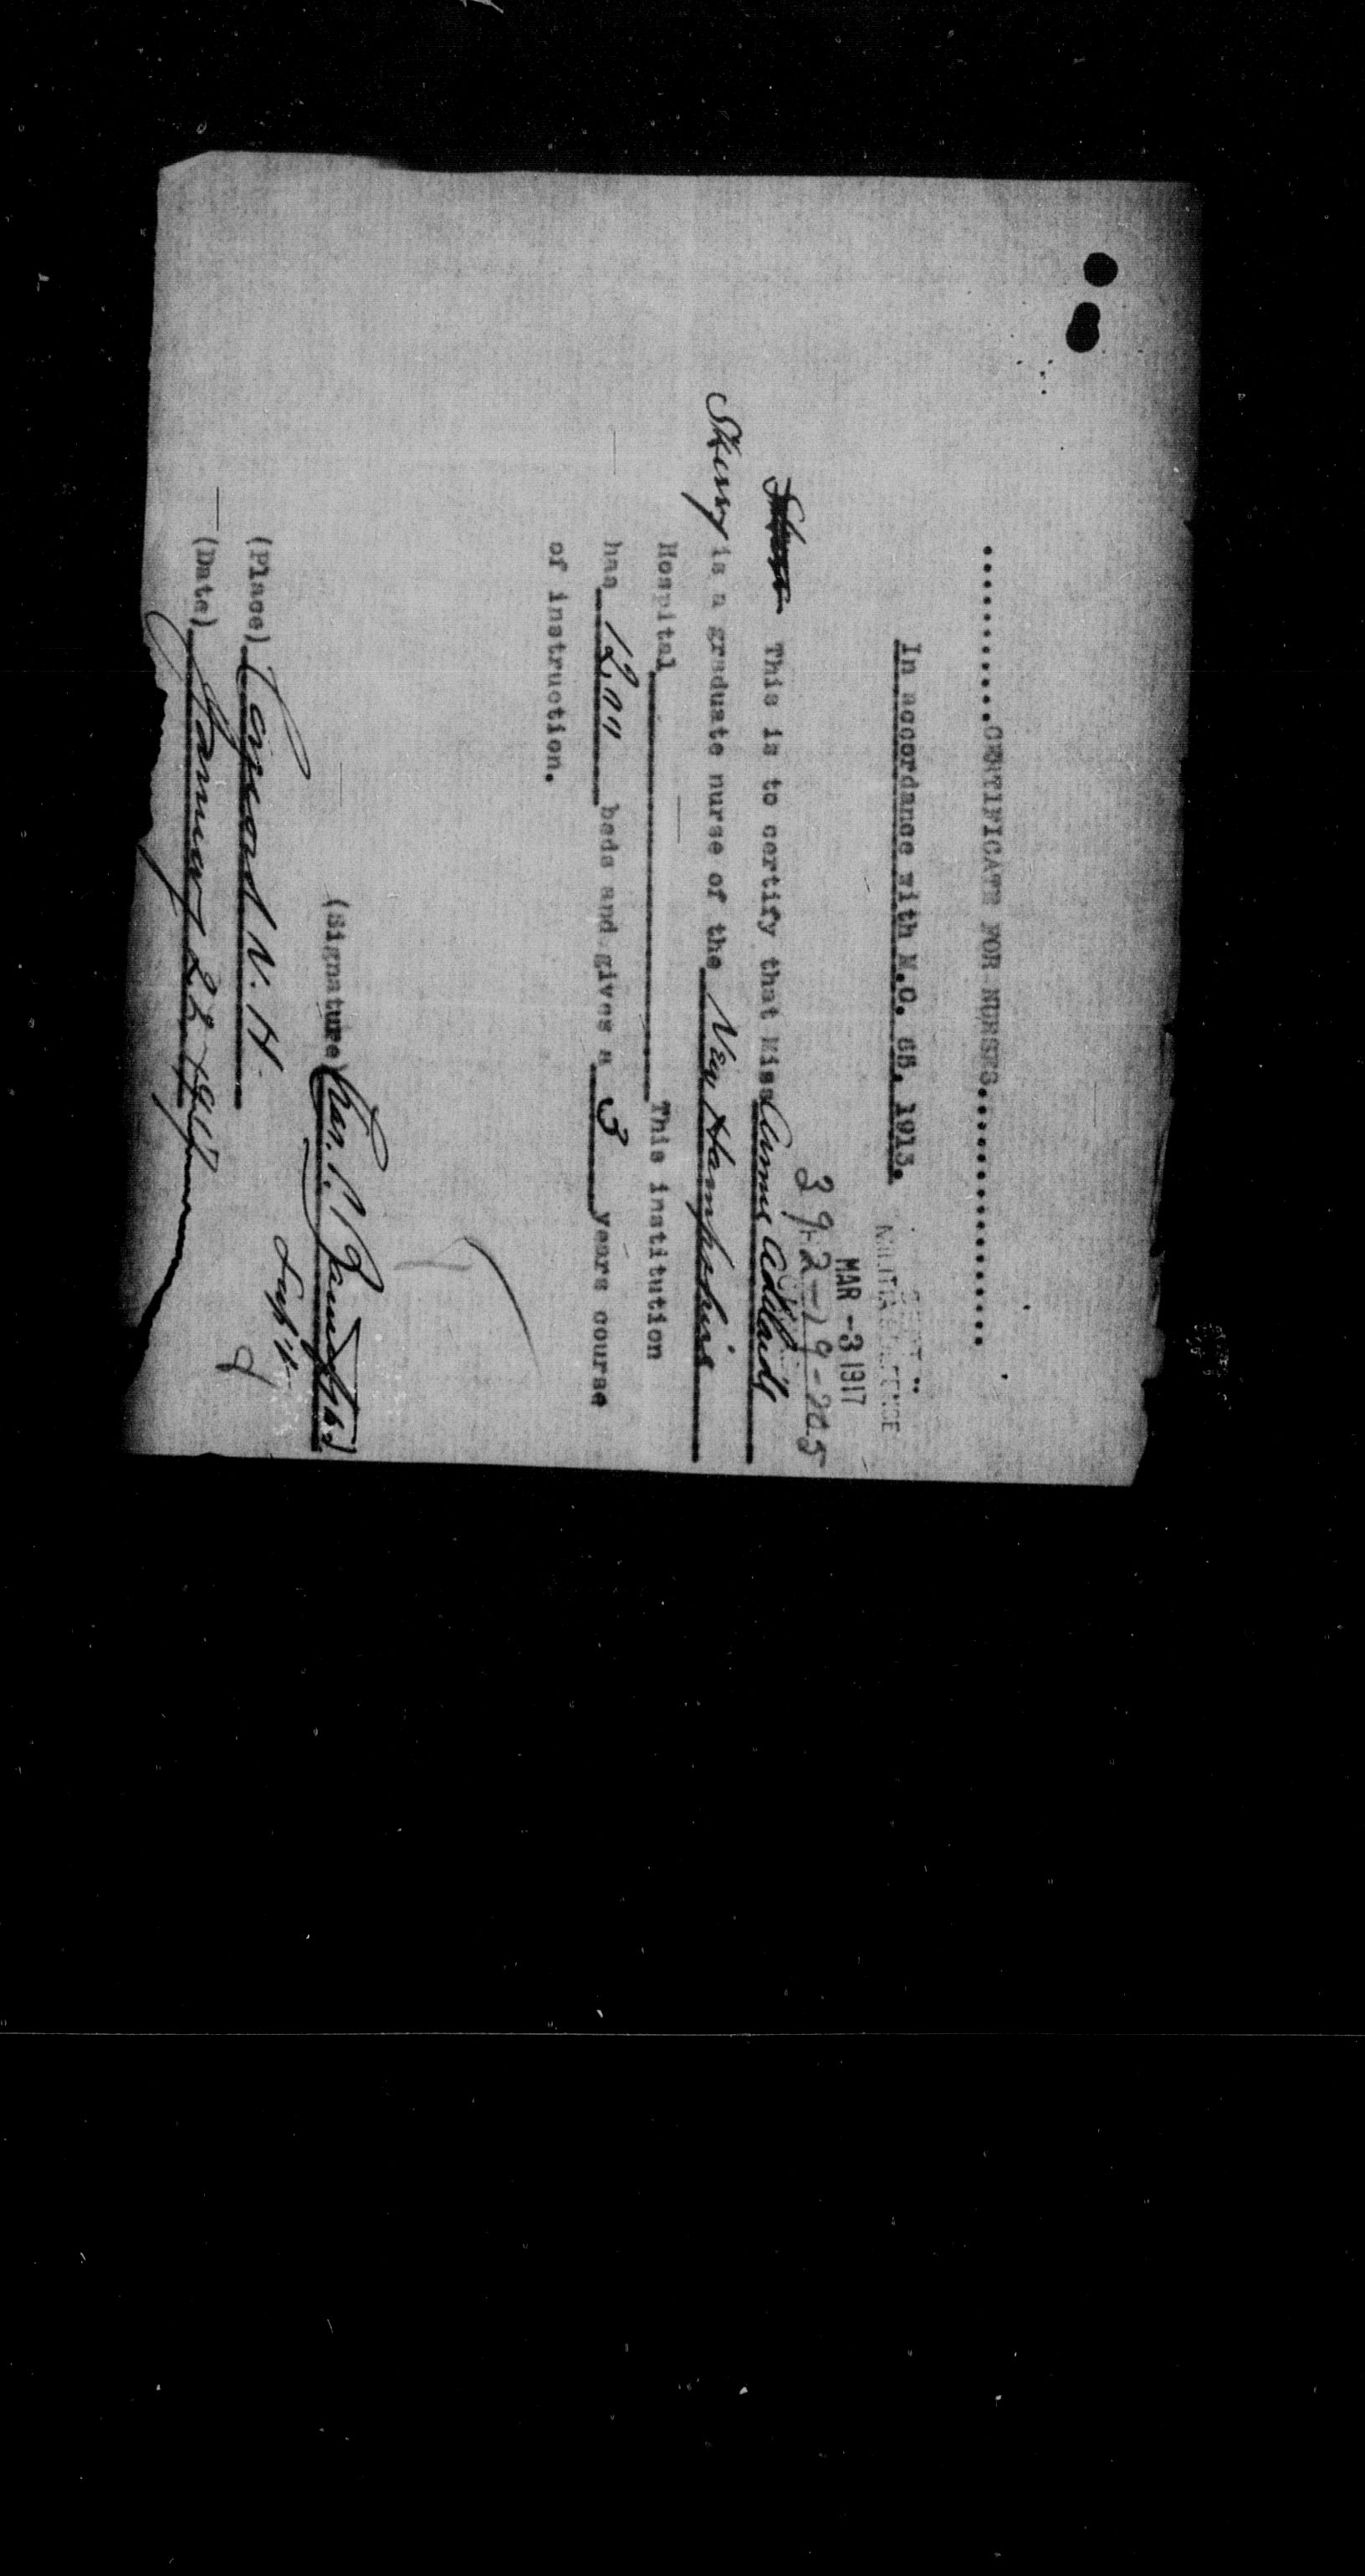 ..........CERTIFICATE FOR NURSES...............
In accordance with M.O. 65, 1913.
MILITIA & DEFENCE
MAR -3 1917
39-2-19-205
This is to certify that Miss Annie Adelaide
Skerry is a graduate nurse of the New Hampshire
Hospital This institution
has 1200 beds and gives a 3 years course
of instruction.
(Signature) Chas. P. Bancroft
Sup't
(Place) Concord N. H.
(Date) January 22 1917